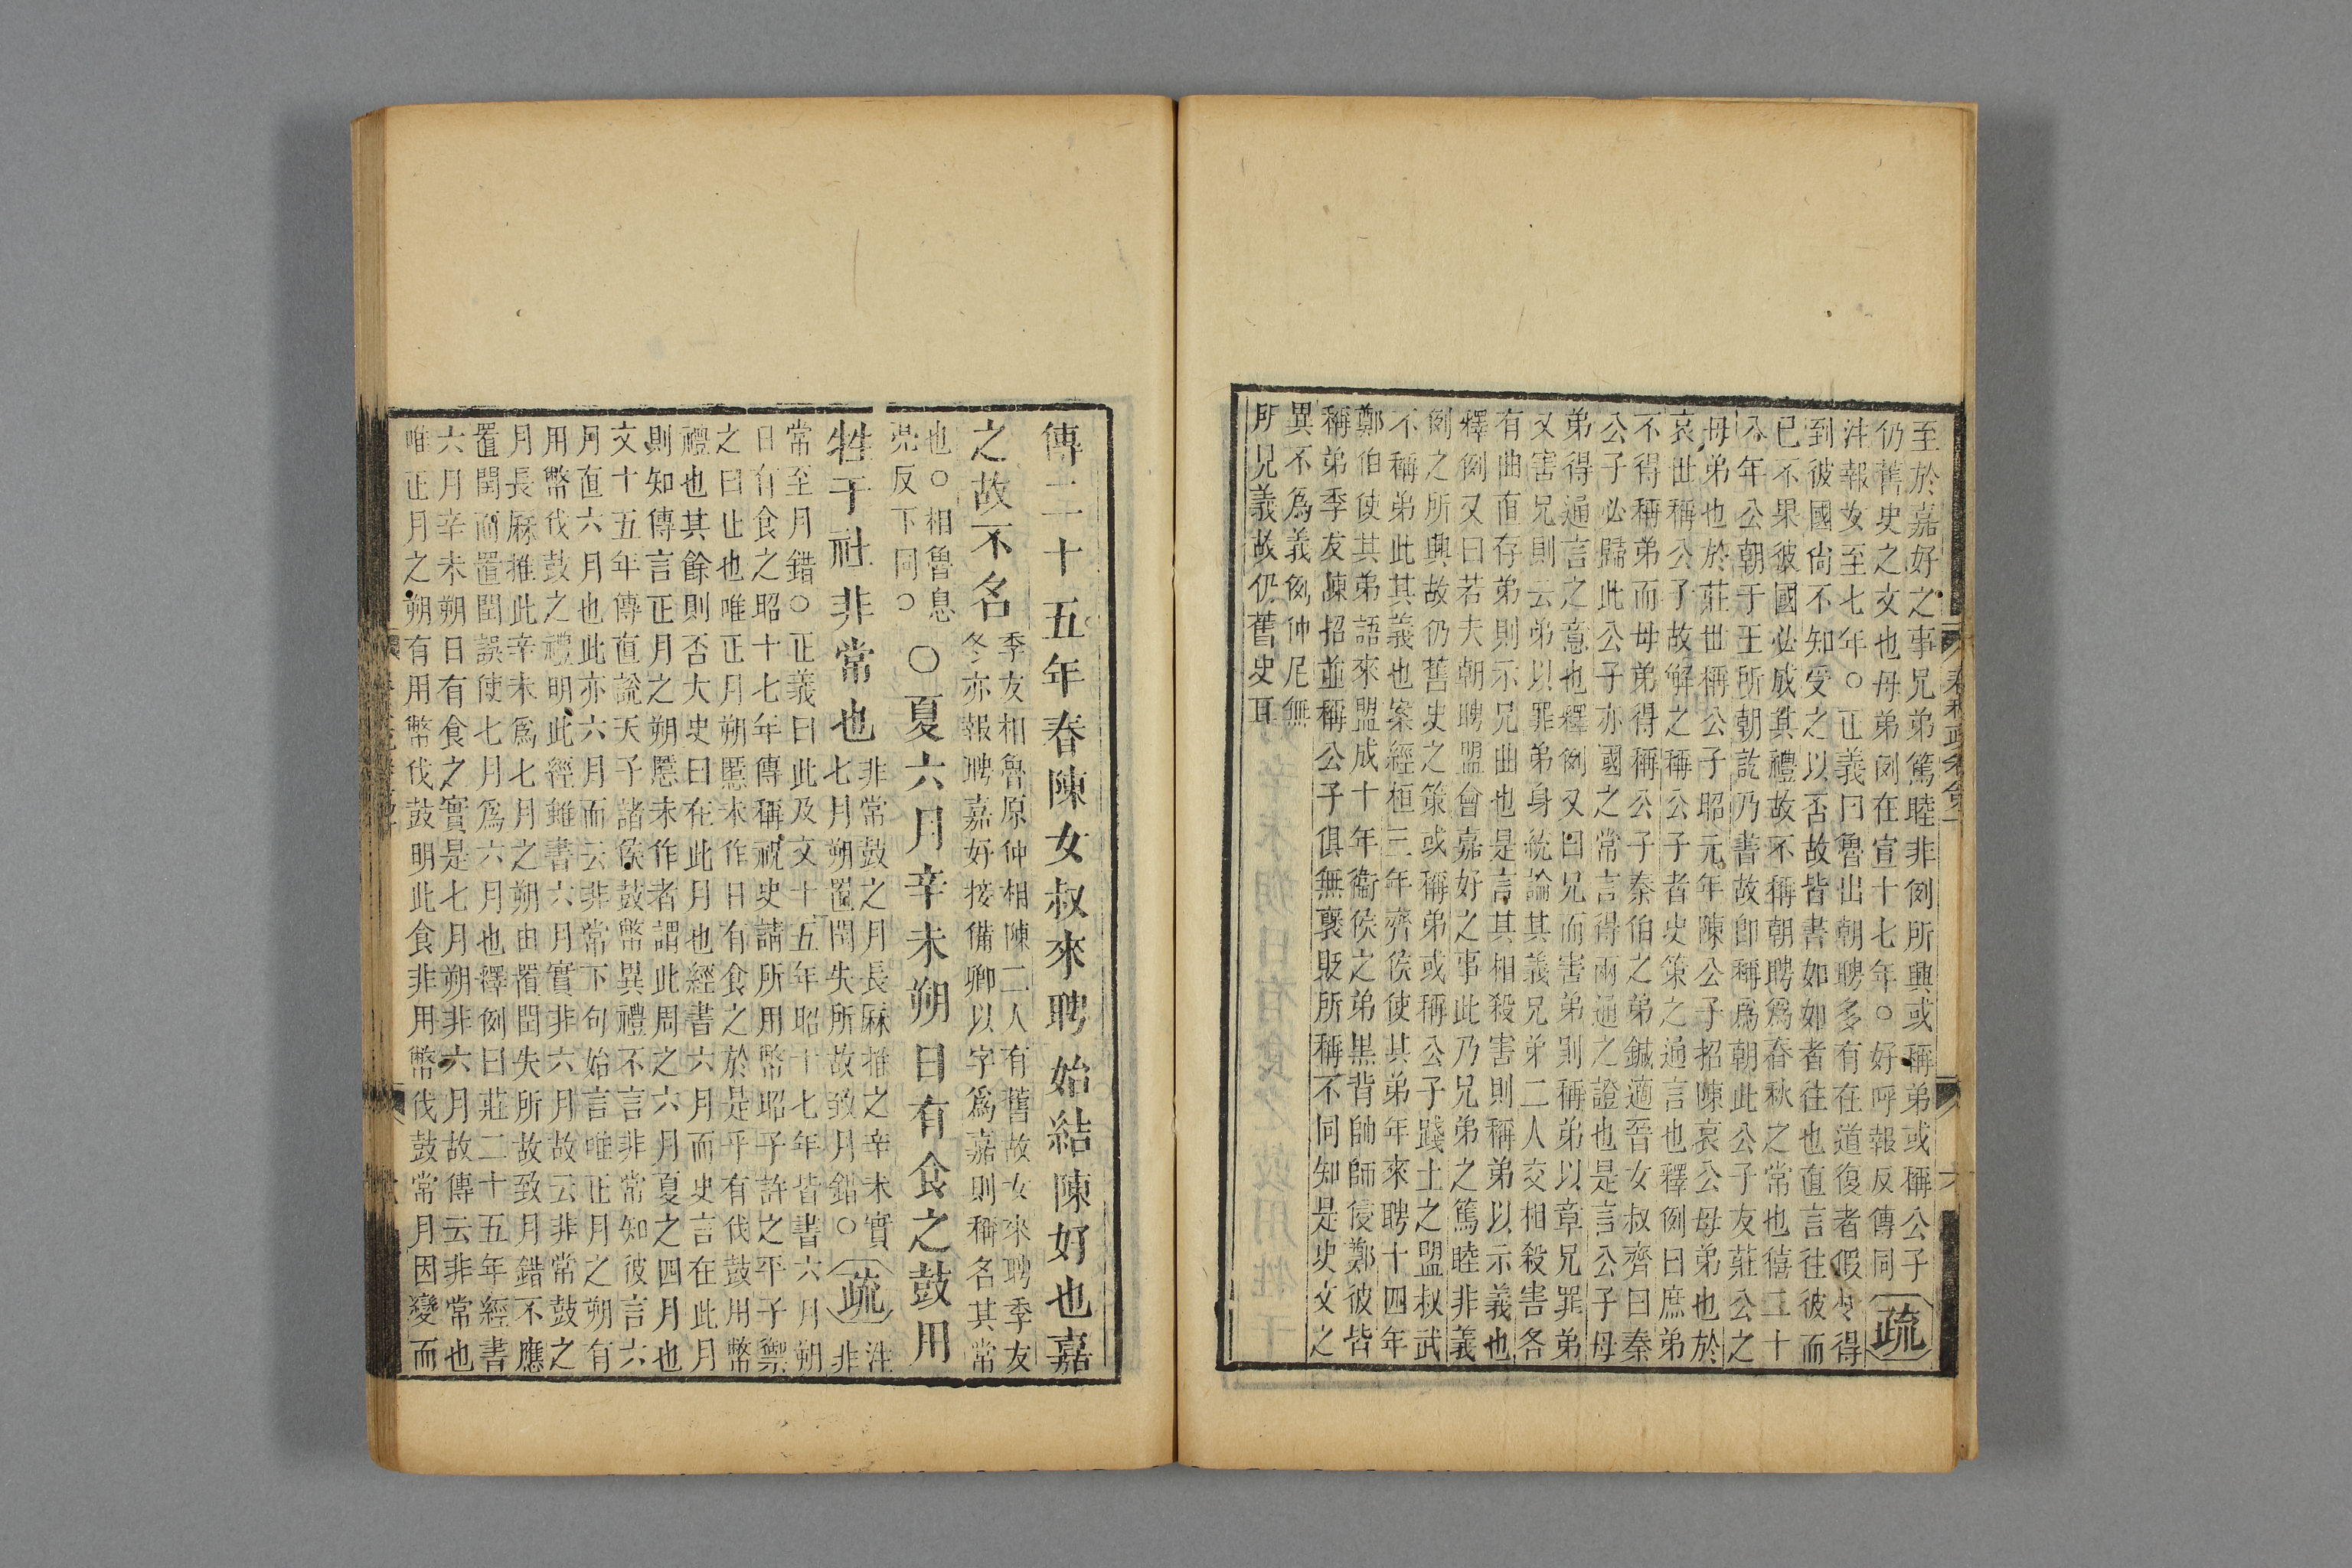 至於嘉好之事兄弟篤睦非例所興或稱弟或稱公子
仍舊史之文也母弟例在宣十七年○好呼報反傳同
疏
注報女至七年○正義曰魯出朝聘多有在道復者假令得
到彼國尚不知受之以否故皆書如如者往也直言往彼而
已不果彼國必成其禮故不稱朝聘爲春秋之常也僖二十
八年公朝于王所朝訖乃書故卽稱爲朝此公子友莊公之
母弟也於莊世稱公子昭元年陳公子招陳哀公母弟也於
哀世稱公子故解之稱公子者史策之通言也釋例曰庶弟
不得稱弟而母弟得稱公子秦伯之弟鍼適晉女叔齊曰秦
公子必歸此公子亦國之常言得兩通之證也是言公子母
弟得通言之意也釋例又曰兄而害弟則稱弟以章兄罪弟
又害兄則云弟以罪弟身統論其義兄弟二人交相殺害各
有曲直存弟則示兄曲也是言其相殺害則稱弟以示義也
釋例又曰若夫朝聘盟會嘉好之事此乃兄弟之篤睦非義
例之所興故仍舊史之策或稱弟或稱公子踐土之盟叔武
不稱弟此其義也案經桓三年齊侯使其弟年來聘十四年
鄭伯使其弟語來盟成十年衞侯之弟黑背帥師侵鄭彼皆
稱弟季友陳招並稱公子俱無褒貶所稱不同知是史文之
異不爲義例仲尼無
所見義故仍舊史耳
傳二十五年春陳女叔來聘始結陳好也嘉
之故不名
季友相魯原仲相陳二人有舊故女來聘季友
冬亦報聘嘉好接備卿以字爲嘉則稱名其常
也○相魯息
亮反下同○
○夏六月辛未朔日有食之鼓用
牲于社非常也
非常鼓之月長厤推之辛未實
七月朔置閏失所故致月錯○
疏
注
非
常至月錯○正義曰此及文十五年昭十七年皆書六月朔
日有食之昭十七年傳稱祝史請所用幣昭子許之平子禦
之曰止也唯正月朔慝未作日有食之於是乎有伐鼓用幣
禮也其餘則否大史曰在此月也經書六月而史言在此月
則知傳言正月之朔慝未作者謂此周之六月夏之四月也
文十五年傳直說天子諸侯鼓幣異禮不言非常知彼言六
月直六月也此亦六月而云非常下句始言唯正月之朔有
用幣伐鼓之禮明此經雖書六月實非六月故云非常鼓之
月長厤推此辛未爲七月之朔由置閏失所故致月錯不應
置閏而置閏誤使七月爲六月也釋例曰莊二十五年經書
六月辛未朔日有食之實是七月朔非六月故傳云非常也
唯正月之朔有用幣伐鼓明此食非用幣伐鼓常月因變而